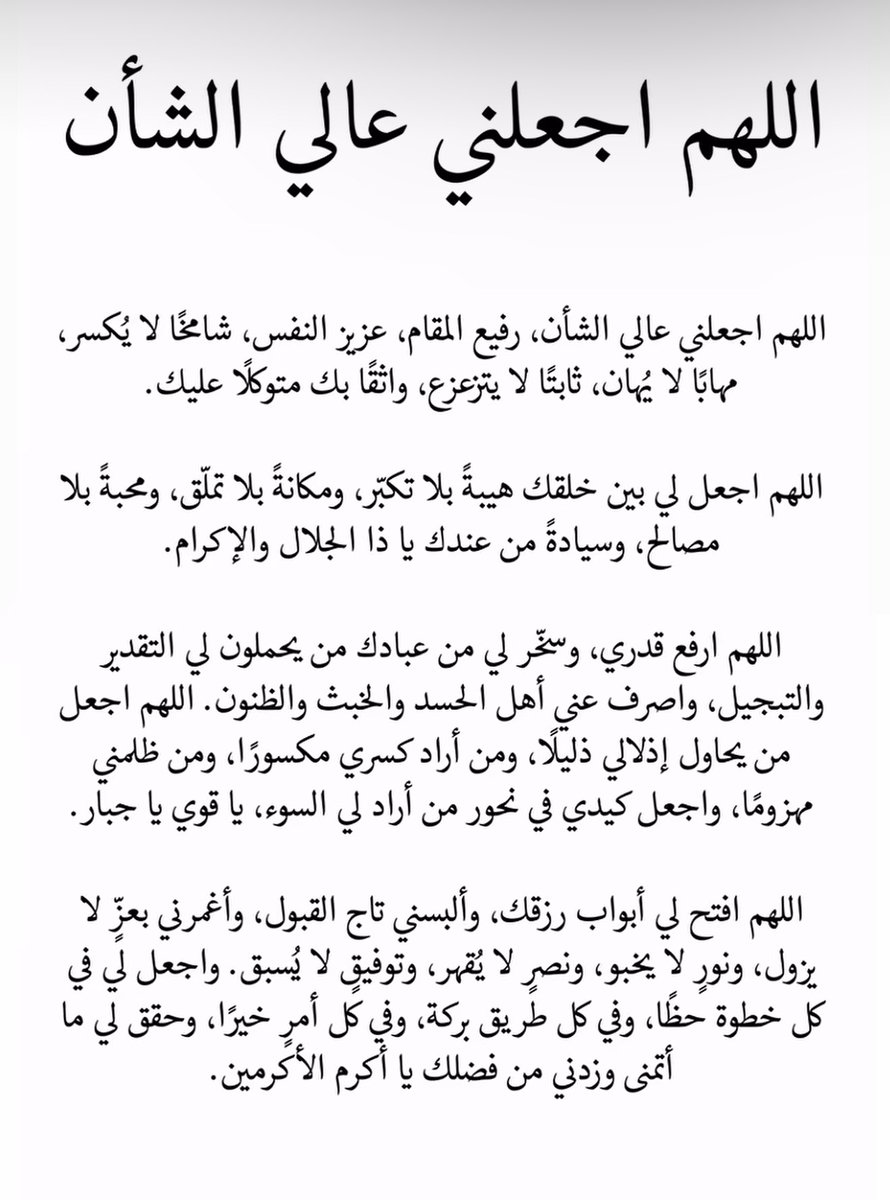 اللهم اجعلني عالي الشأن
اللهم اجعلني عالي الشأن، رفيع المقام، عزيز النفس، شامخًا لا يُكسر،
مهابًا لا يُهان، ثابتًا لا يتزعزع، واثقًا بك متوكلًا عليك.
اللهم اجعل لي بين خلقك هيبةً بلا تكبّر، ومكانةً بلا تملّق، ومحبةً بلا
مصالح، وسيادةً من عندك يا ذا الجلال والإكرام.
اللهم ارفع قدري، وسخّر لي من عبادك من يحملون لي التقدير
والتبجيل، واصرف عني أهل الحسد والخبث والظنون. اللهم اجعل
من يحاول إذلالي ذليلًا، ومن أراد كسري مكسورًا، ومن ظلمني
مهزومًا، واجعل كيدي في نحور من أراد لي السوء، يا قوي يا جبار.
اللهم افتح لي أبواب رزقك، وألبسني تاج القبول، وأغمرني بعزٍّ لا
يزول، ونورٍ لا يخبو، ونصرٍ لا يُقهر، وتوفيقٍ لا يُسبق. واجعل لي في
كل خطوة حظًا، وفي كل طريق بركة، وفي كل أمرٍ خيرًا، وحقق لي ما
أتمنى وزدني من فضلك يا أكرم الأكرمين.